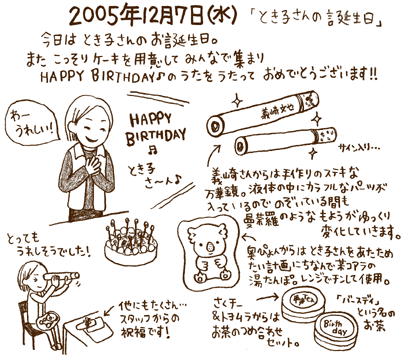 2005年12月7日(水) 「とき子さんの誕生日」
今日は とき子さんのお誕生日。
また こっそり ケーキを用意して みんなで集まり
HAPPY BIRTHDAY♪のうたをうたって おめでとうございます!!
わー
うれしい!
HAPPY
BIRTHDAY
♫
とき子
さ〜ん♪
義崎文也
サイン入り…
義崎さんからは手作りのステキな
万華鏡。液体の中にカラフルなパーツが
入っているので のぞいている間も
曼荼羅のようなもようがゆっくり
変化していきます。
とっても
うれしそうでした!
奥ぴょんからは とき子さんをあたため
たい計画にちなんで 某コアラの
湯たんぽ。レンジでチンして使用。
他にもたくさん…
スタッフからの
祝福です!
さくチー
&トヨムラからは
お茶のつめ合わせ
セット。
Birth
day
「バースデイ」
という名の
お茶